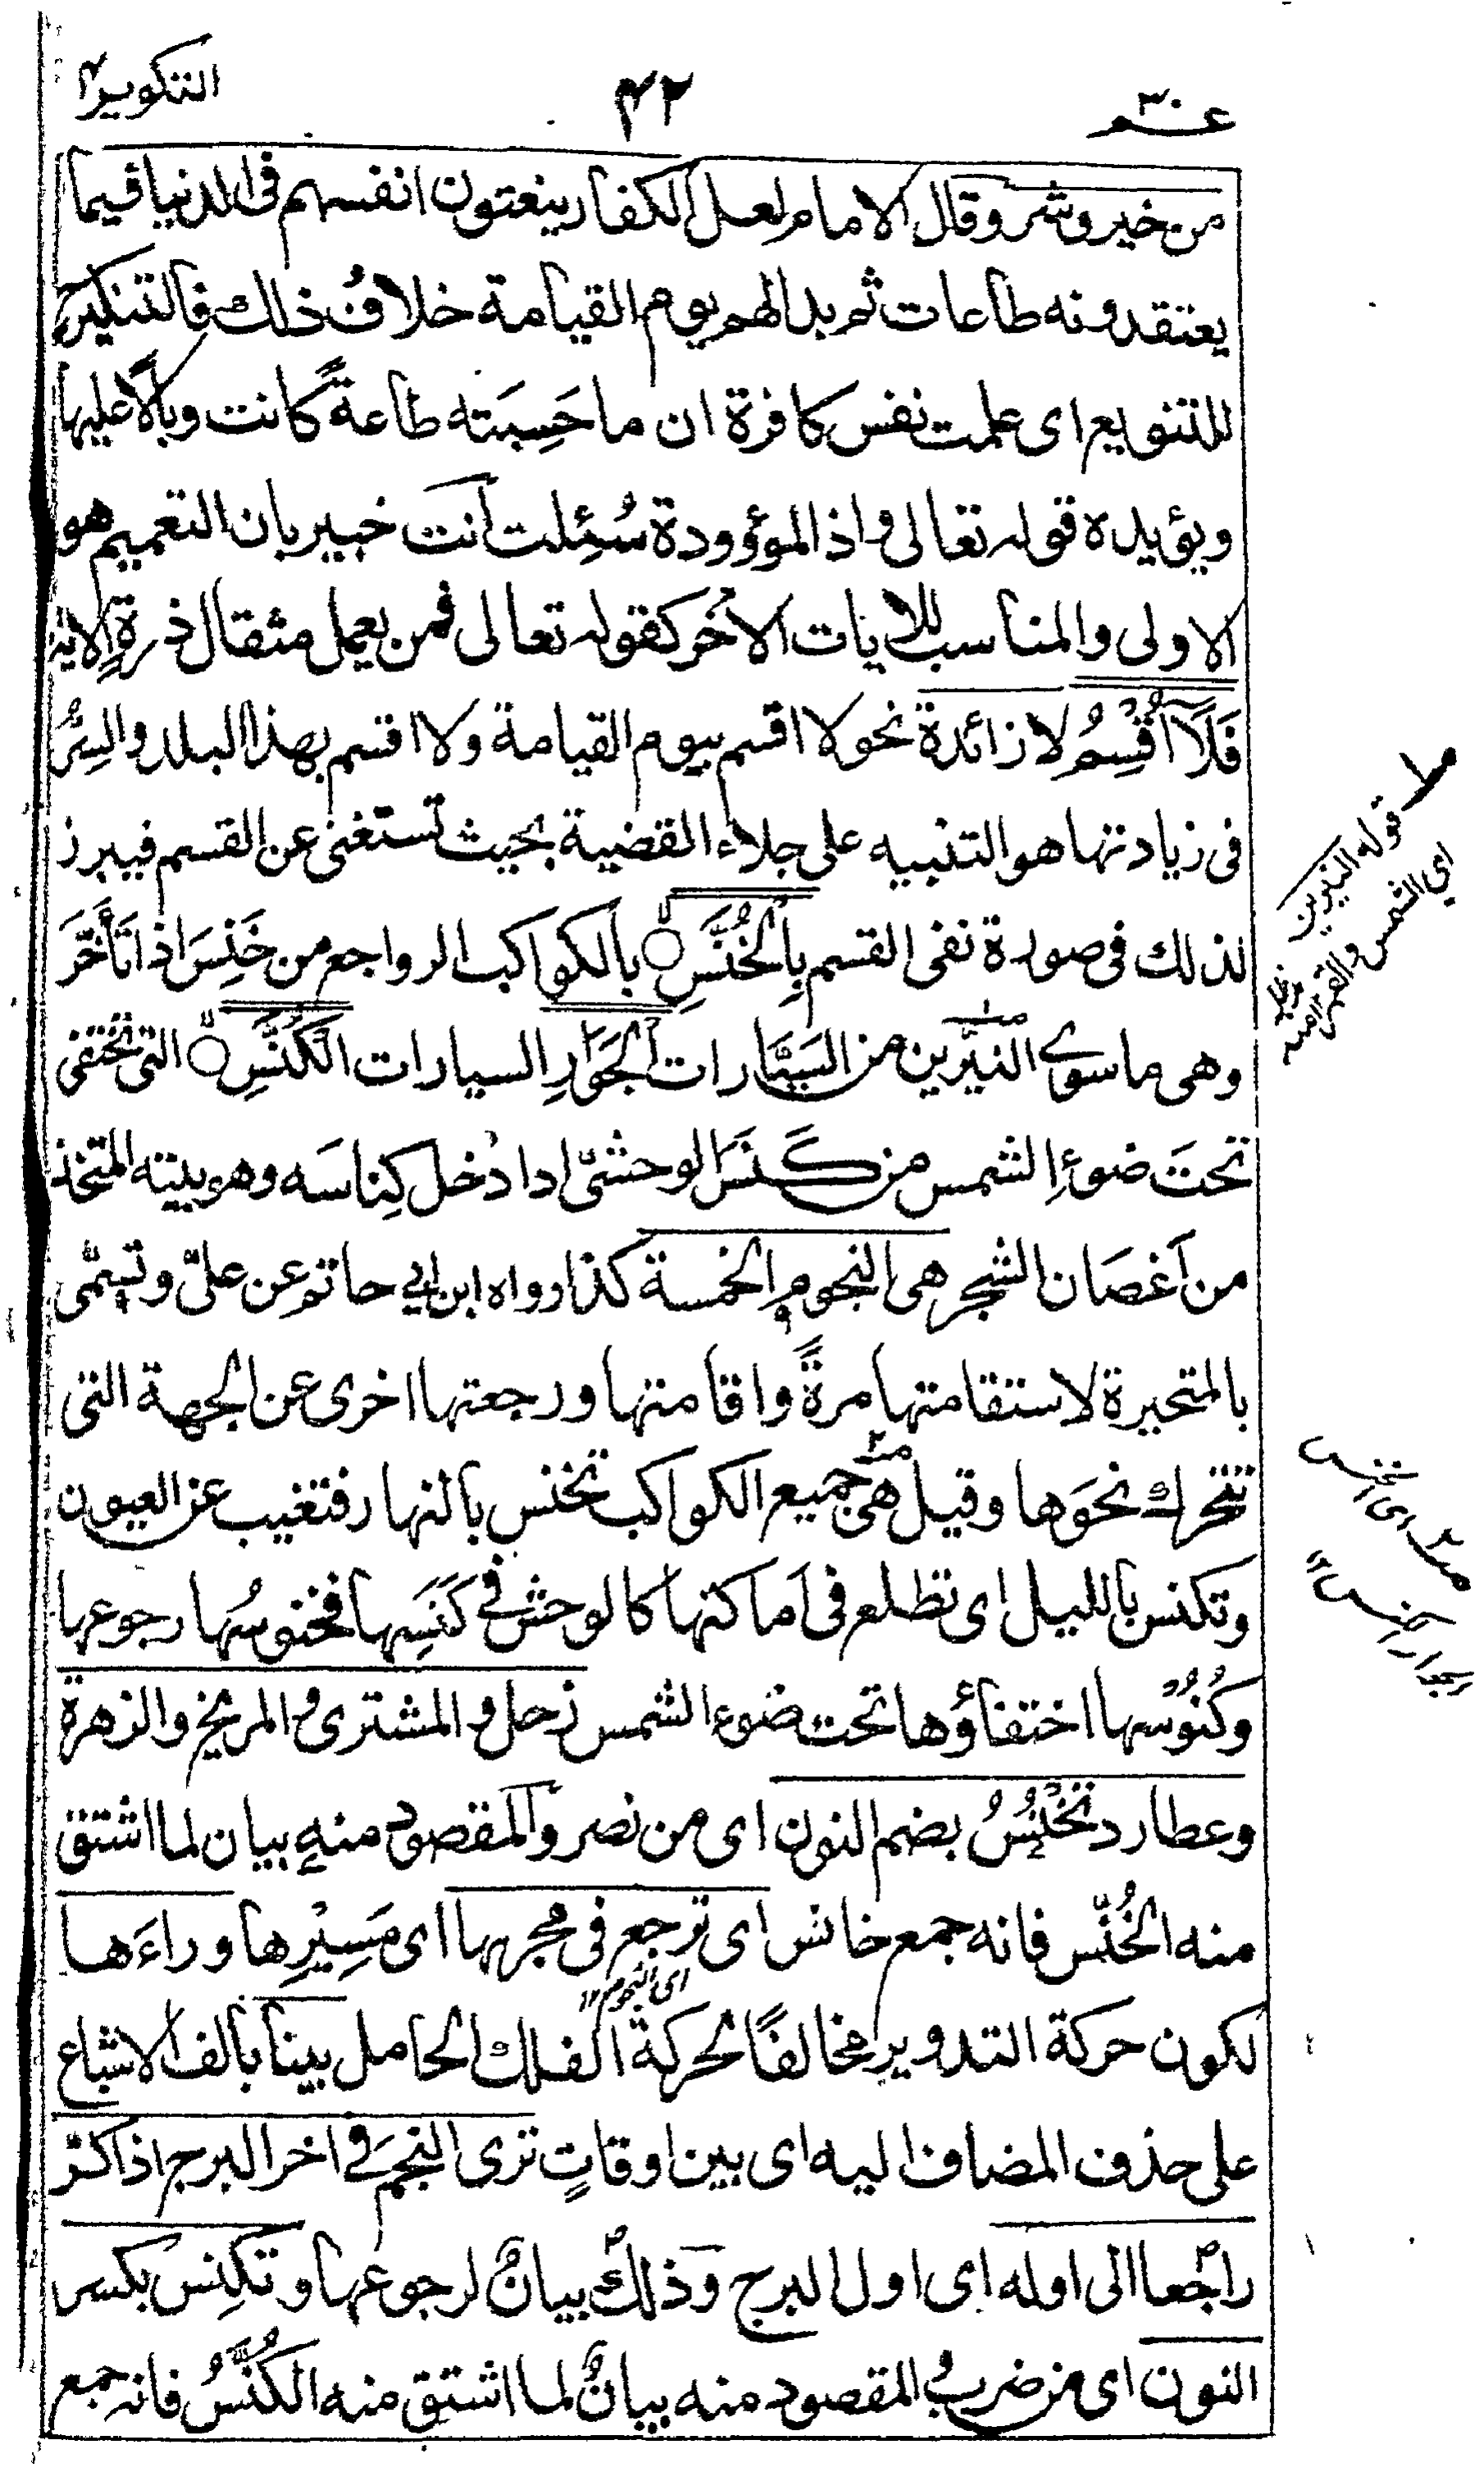 عـم ٣٠
٤٢
التكوير
من خير وشر وقال الامام لعل الكفار يتعبون انفسهم فى الدنيا فيما
يعتقدونه طاعات ثم بدا لهم يوم القيامة خلافُ ذلك فالتنكير
للتنويع اى علمت نفس كافرة ان ما حَسِبَته طاعةً كانت وبالًا عليها
ويؤيده قوله تعالى واذا الموؤودة سُئِلت انت خبير بان التعميم هو
الاولى والمناسب للايات الاُخَر كقوله تعالى فمن يعمل مثقال ذرةٍ الاية
فَلَآ اُقْسِمُ لا زائدة نحو لا اقسم بيوم القيامة ولا اقسم بهذا البلد والسِرُّ
فى زيادتها هو التنبيه على جلاء القضية بحيث تستغنى عن القسم فيبرز
لذلك فى صورة نفى القسم بِالْخُنَّسِ بالكواكب الرواجع من خَنِسَ اذا تَأَخَّرَ
وهى ما سوى النيِّرين من السَيَّارات الْجَوَارِ السيارات الْكُنَّسِ التى تختفى
تحتَ ضوءِ الشمس من كَنَسَ الوحشىّ اذا دَخل كِناسَه وهو بيته المتخذ
من اَغصَان الشجر هى النجوم الخمسة كذا رواه ابن ابي حاتم عن علىّ وتسمّى
بالمتحيرة لاستقامتها مرةً واقامتها ورجعتها اخرى عن الجهة التى
تتحرك نحوَها وقيل هى جميع الكواكب تخنس بالنهار فتغيب عن العيون
وتكنس بالليل اى تطلع فى اَماكنها كالوحش فى كَنَسِها فخنوسُها رجوعها
وكُنُوْسها اختفاؤها تحت ضوء الشمس زحل و المشترى و المريخ والزهرة
وعطارد تَخْنُسُ بضم النون اى من نصر والمقصود منه بيان لما اشتق
منه الخُنَّس فانه جمع خانس اى ترجع فى مجرىها اى مَسِيْرِها وراءَها
اى النجوم ١٢
لكون حركة التدوير مخالفًا لحركة الفلك الحامل بينا بالف الاشباع
على حذف المضاف اليه اى بين اوقاتٍ ترى النجمَ فى اخر البرج اذ اكرّ
راجعا الى اوله اى اول البرج وذلك بيانٌ لرجوعها وتكنِس بكسر
النون اى من ضرب و المقصود منه بيانٌ لما اشتق منه الكُنَّسُ فانه جمع
قوله النيرين
اي الشمس والقمر